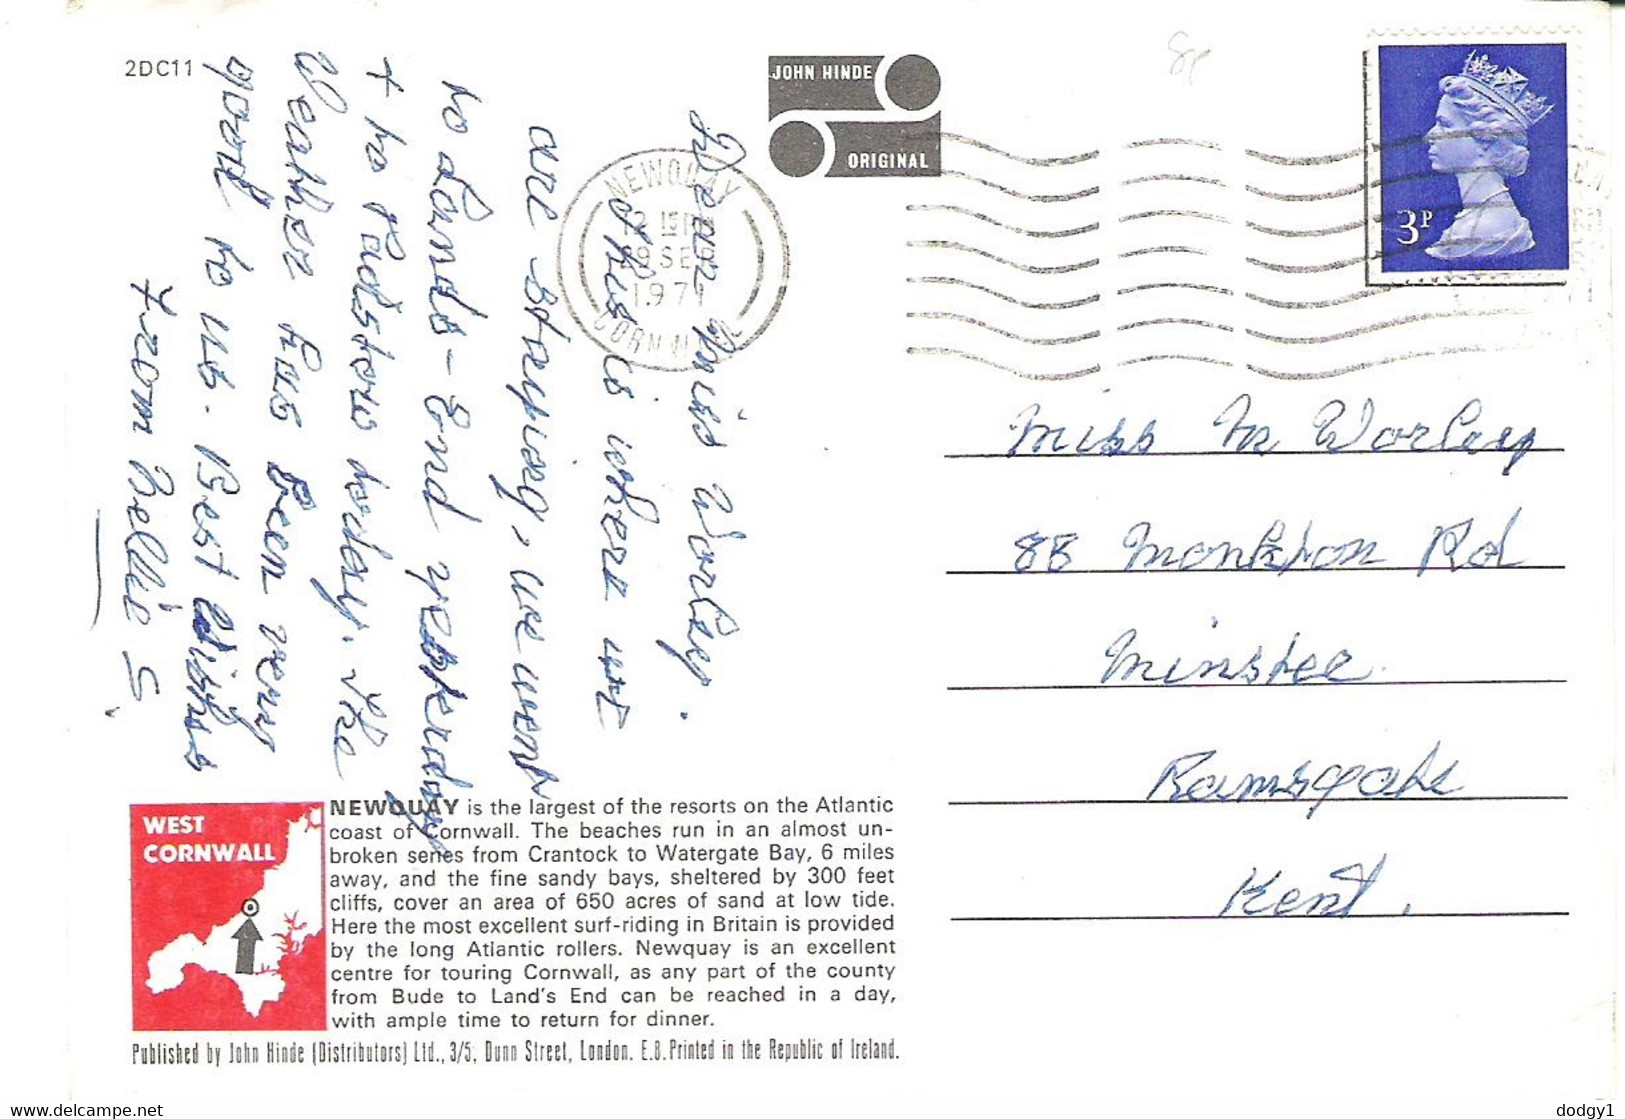 2DC11
JOHN HINDE
ORIGINAL
NEWQUAY
12 15 PM
29 SEP
1971
CORNWALL
3P
Dear Miss Worley.
This is where we
are staying, we went
to Lands-End yesterday
+ to Padstow today. The
Weather has been very
good to us. Best Wishes
From Nellie S.
Miss M Worley
88 Monkton Rd
Minster
Ramsgate
Kent.
WEST
CORNWALL
NEWQUAY is the largest of the resorts on the Atlantic
coast of Cornwall. The beaches run in an almost un-
broken series from Crantock to Watergate Bay, 6 miles
away, and the fine sandy bays, sheltered by 300 feet
cliffs, cover an area of 650 acres of sand at low tide.
Here the most excellent surf-riding in Britain is provided
by the long Atlantic rollers. Newquay is an excellent
centre for touring Cornwall, as any part of the county
from Bude to Land's End can be reached in a day,
with ample time to return for dinner.
Published by John Hinde (Distributors) Ltd., 3/5, Dunn Street, London. E.8. Printed in the Republic of Ireland.
www.delcampe.net
dodgy1